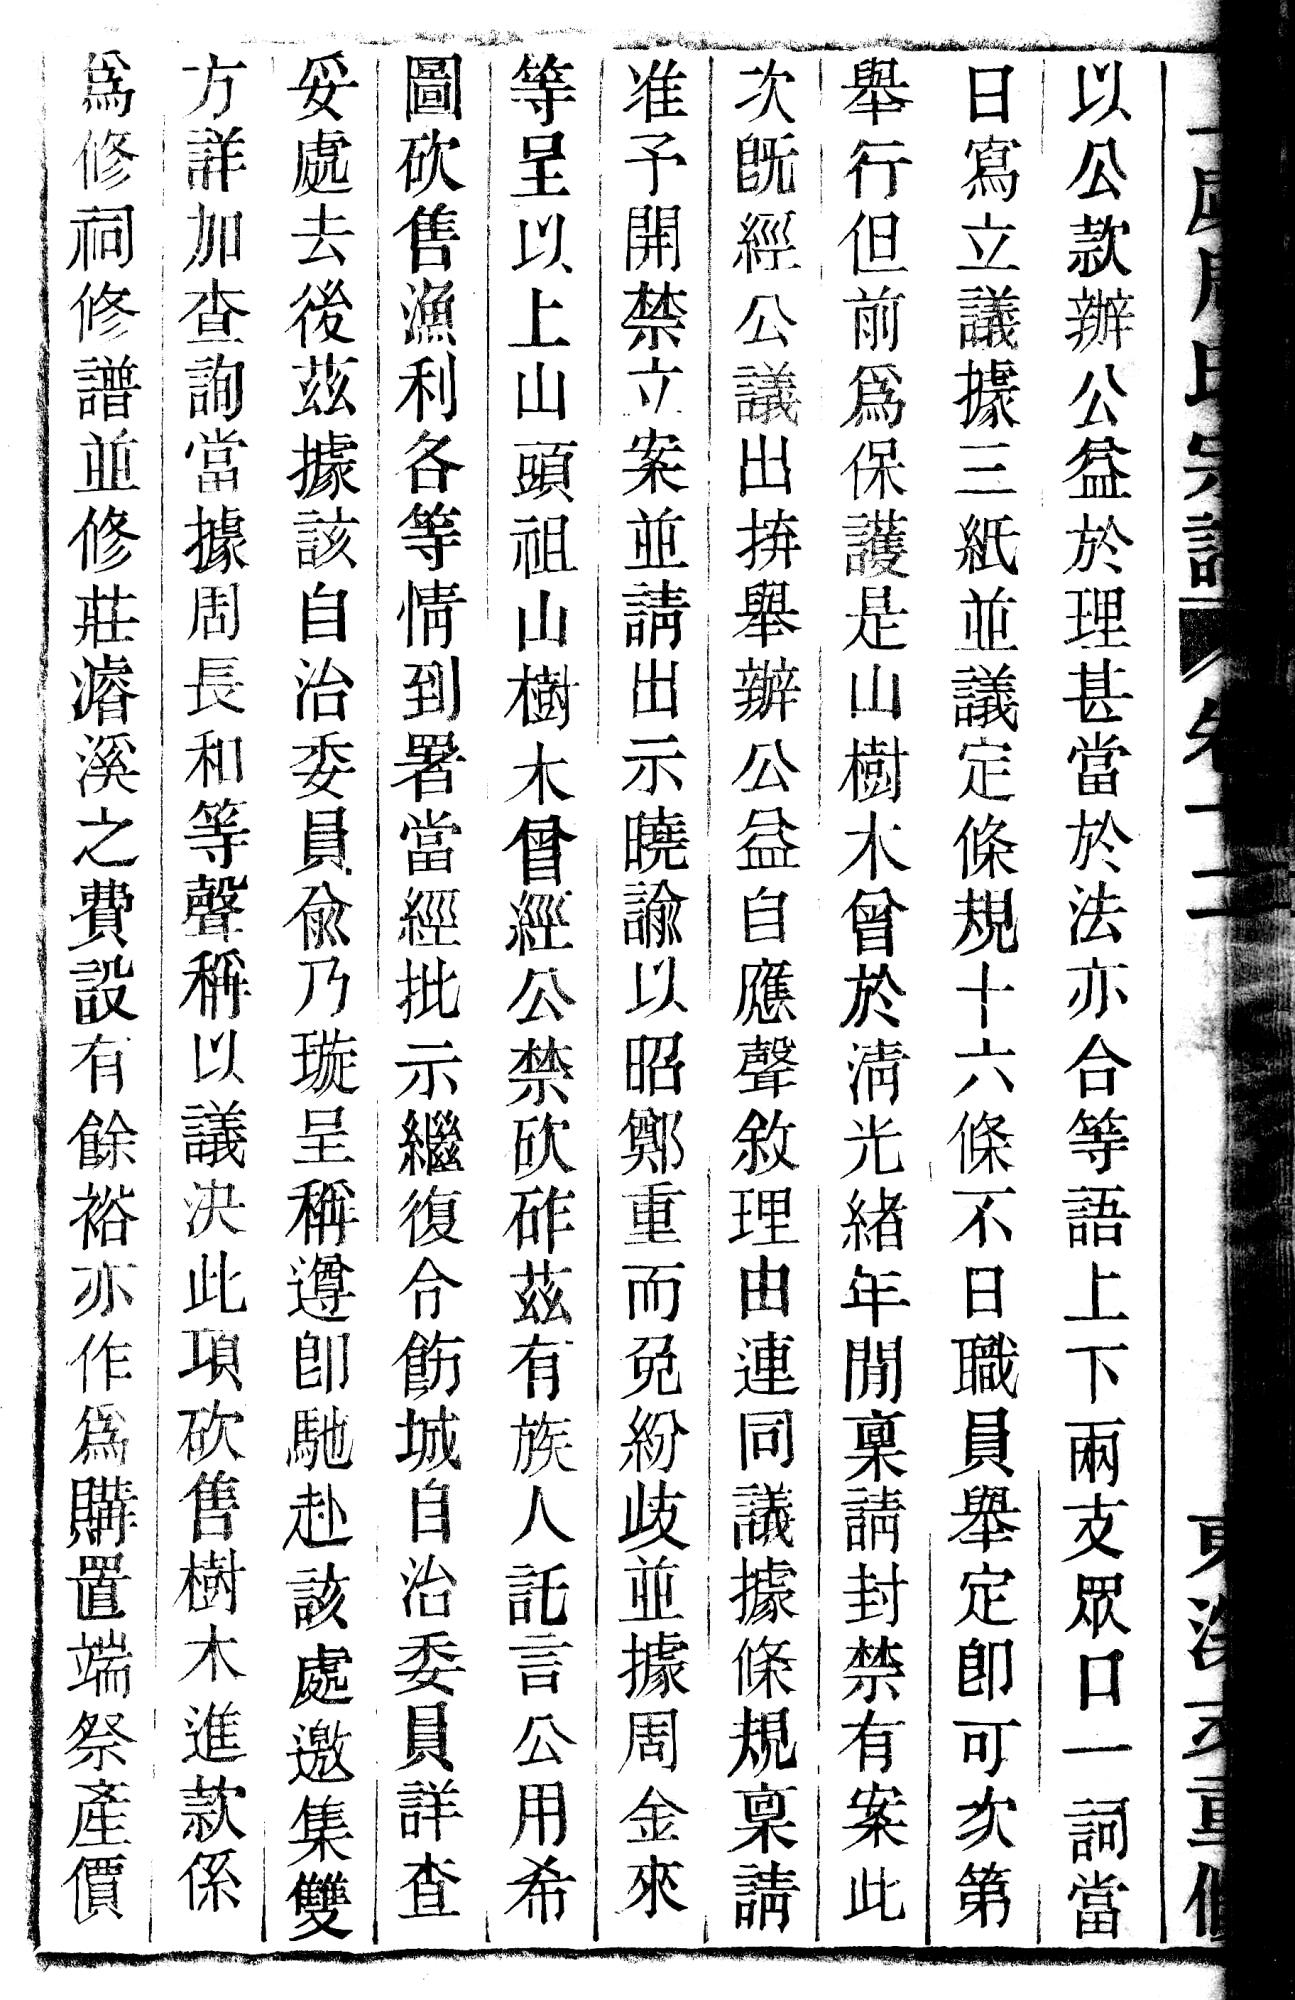 氏宗譜 卷十二
以公款辦公益於理甚當於法亦合等語上下兩支眾口一詞當
日寫立議據三紙並議定條規十六條不日職員舉定卽可次第
舉行但前爲保護是山樹木曾於淸光緖年閒稟請封禁有案此
次旣經公議出拚舉辦公益自應聲敘理由連同議據條規稟請
准予開禁立案並請出示曉諭以昭鄭重而免紛歧並據周金來
等呈以上山頭祖山樹木曾經公禁砍砟茲有族人託言公用希
圖砍售漁利各等情到署當經批示繼復令飭城自治委員詳查
妥處去後茲據該自治委員兪乃璇呈稱遵卽馳赴該處邀集雙
方詳加查詢當據周長和等聲稱以議決此項砍售樹木進款係
爲修祠修譜並修莊濬溪之費設有餘裕亦作爲購置端祭產價